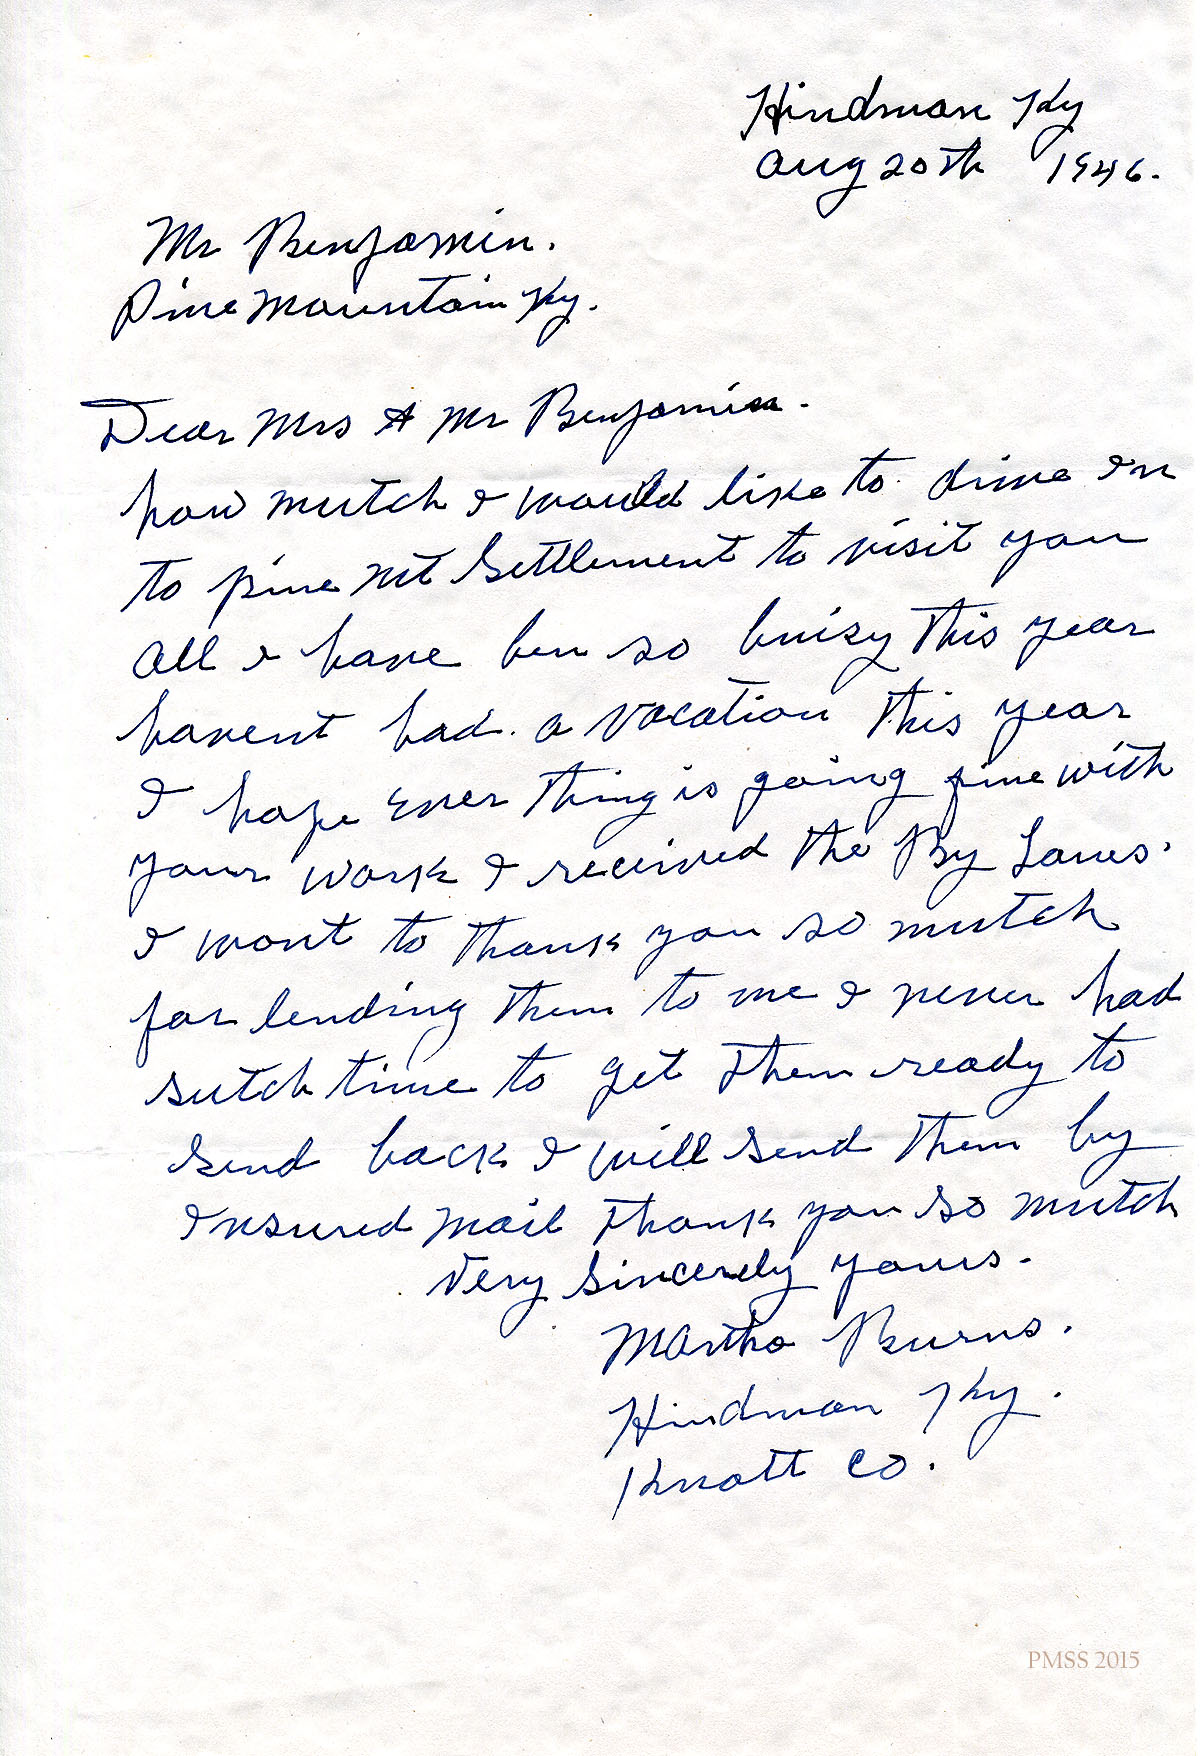 Hindman Ky
Aug 20th 1946.
Mr Benjamin.
Pine Mountain Ky.
Dear Mrs & Mr Benjamin.
how mutch I would like to drive in
to pine Mt Settlement to visit you
all I have ben so buisy this year
havent had a vacation this year
I hope ever thing is going fine with
your work I received the By Laws.
I wont to thank you so mutch
for lending them to me I never had
sutch time to get them ready to
send back I will send them by
Insured Mail thank you so mutch
Very Sincerely yours.
Martha Burns.
Hindman Ky.
Knott Co.
PMSS 2015